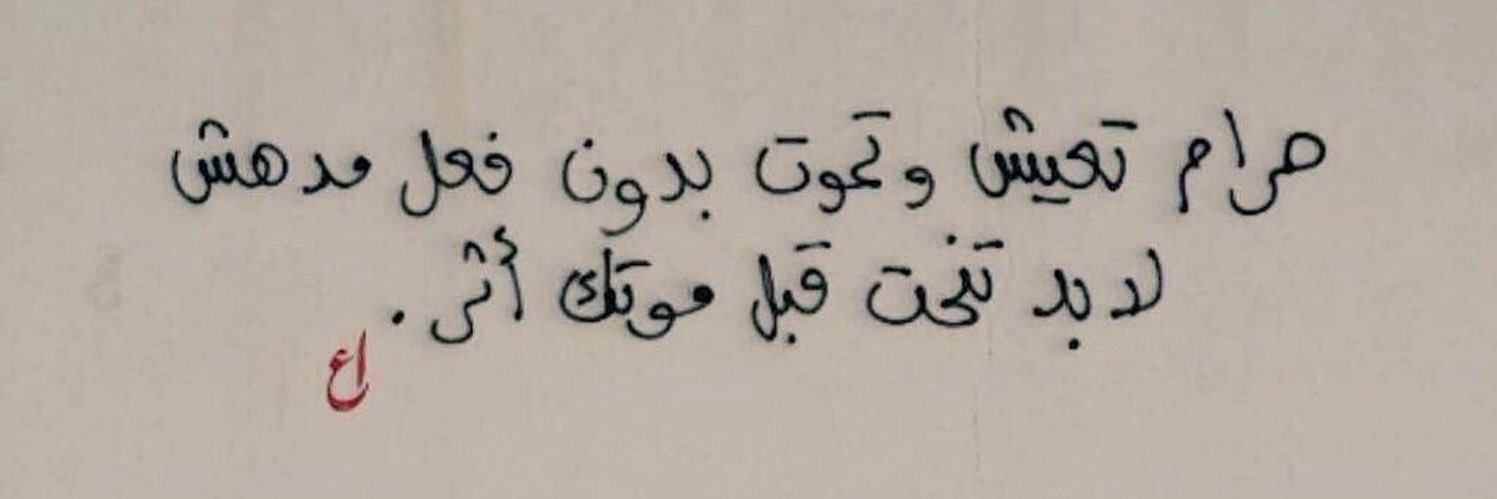 حرام تعيش وتموت بدون فعل مدهش
لا بد تنحت قبل موتك أثر .
اع